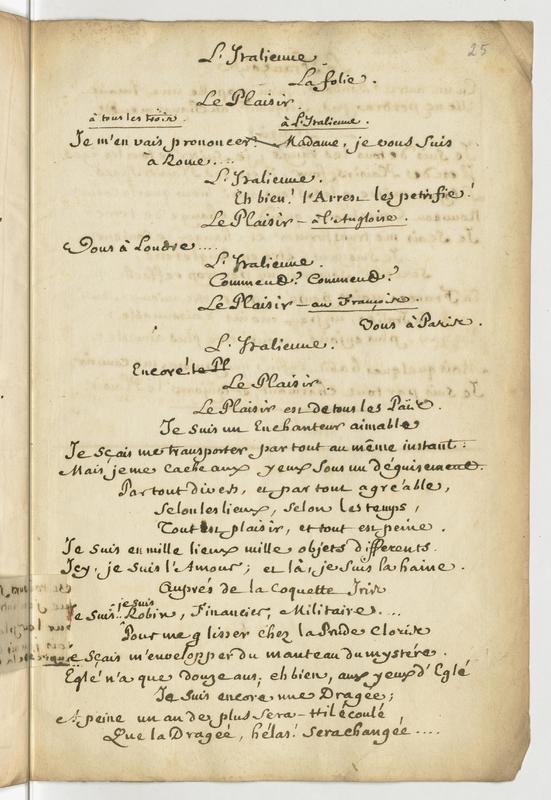 25
L'Italienne
La folie.
Le Plaisir.
à tous les trois. à L'Italienne.
Je m'en vais prononcer. Madame, je vous suis
à Rome....
L'Italienne.
Eh bien! l'Arrest les petrifie!
Le Plaisir - à l'Angloise.
Vous à Londre....
L'Italienne.
Commend? Commend?
Le Plaisir - au François.
Vous à Paris.
L'Italienne.
Encoré! le Pl
Le Plaisir.
Le Plaisir est de tous les Païs.
Je suis un Enchanteur aimable
Je sçais me transporter partout au même instant:
Mais je me cache aux yeux sous un déguisement.
Partout divers, et partout agréable,
Selon les lieux, selon les temps,
Tout est plaisir, et tout est peine.
Je suis en mille lieux mille objets differents.
Icy, je suis l'Amour; et là, je suis la haine.
Auprés de la Coquette Iris
je suis
Je suis Robin, Financier, Militaire....
Pour me glisser chez la Prude Cloris
Je sçais m'envelopper du manteau du mystére.
Eglé n'a que douze ans; eh bien, aux yeux d'Eglé
Je suis encore une Dragée;
Et peine un an de plus sera-ttil écoulé
Que la Dragée, hélas! sera changée....